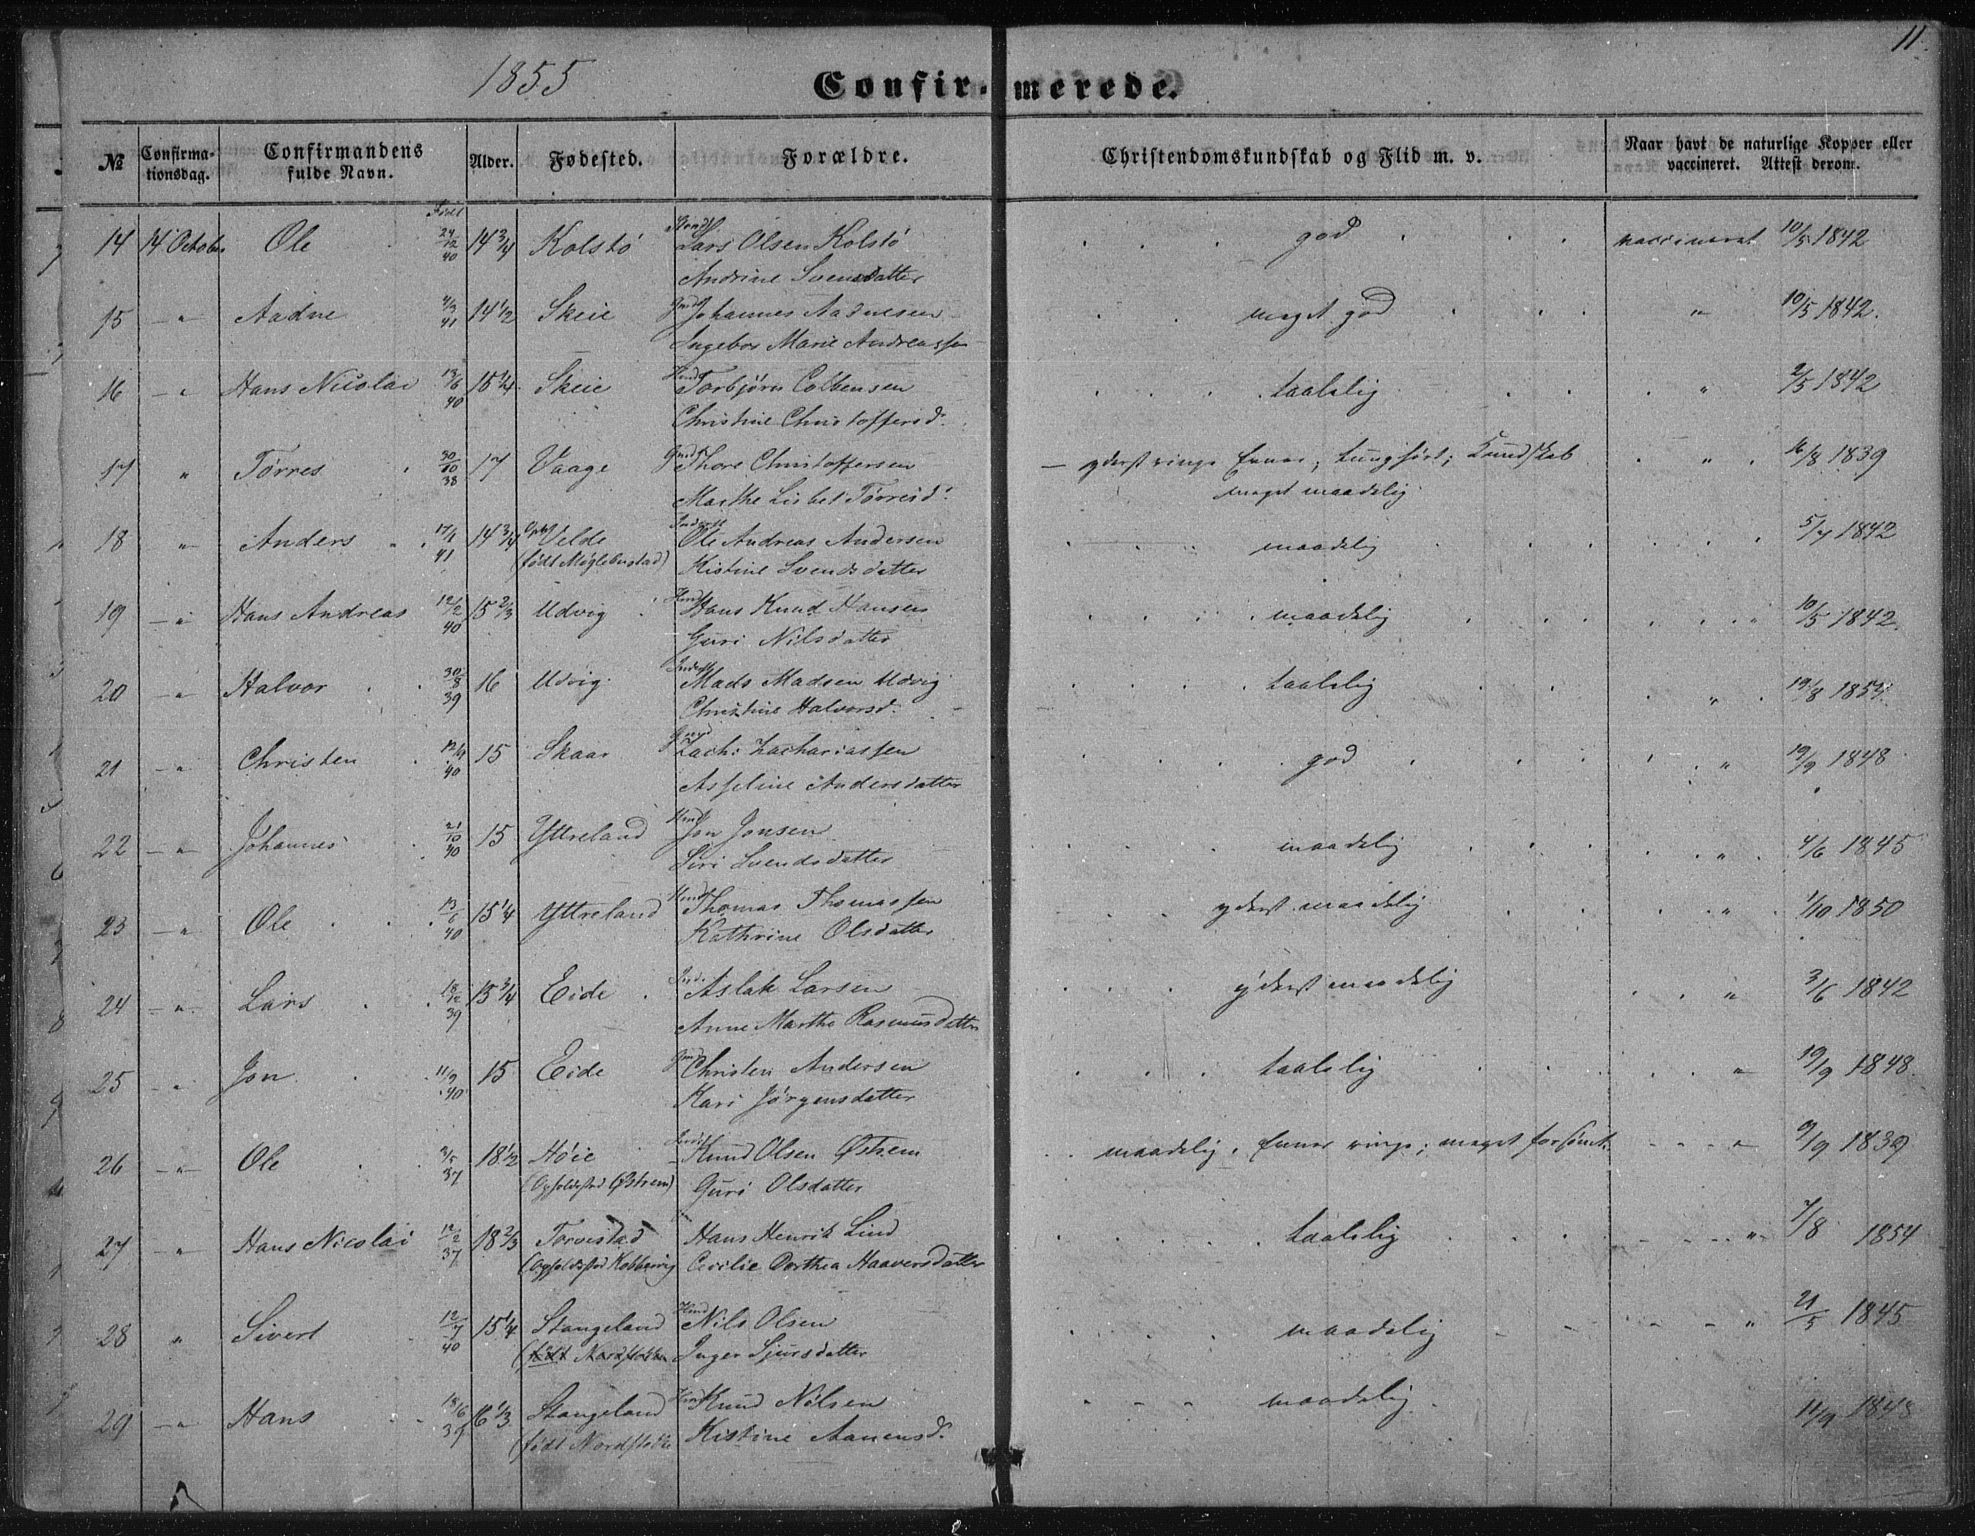 11.
1855 Confirmerede.
№ Confirmationsdag. Confirmandens fulde Navn. Alder. Fødested. Forældre. Christendomskundskab og Flid m. v. Naar havt de naturlige Kopper eller vaccineret. Attest derom.
Født
14 14 October Ole 24/12 40 14 3/4 Kolstø Lars Olsen Kolstø god vaccineret 10/5 1842
Andrine Svensdatter
15 — " Aadne 4/3 41 14 1/2 Skeie Johannes Aadnesen meget god " 10/5 1842.
Ingebor Marie Andreassen
16 — " Hans Nicolai 13/6 40 15 1/4 Skeie Torbjørn Colbensen taalelig " 2/5 1842
Christine Christoffersd.
17 " Tørres 30/10 38 17 Vaage Thore Christoffersen — yderst ringe Evner, tunghørt; Kundskab " 16/8 1839
Marthe Lisbet Tørresd. meget maadelig
18 " Anders 17/1 41 14 3/4 Velde Ole Andreas Andersen maadelig 5/7 1842
(født Møglebustad) Kistine Svendsdatter
19 — " Hans Andreas 12/2 40 15 2/3 Udvig Hans Knud Hansen maadelig " 10/5 1842.
Guri Nilsdatter
20 — " Halvor 30/8 39 16 Udvig Mads Madsen Udvig taalelig " 19/8 1854.
Christine Halvorsd.
21 — " Christen 12/9 40 15 Skaar Zachi Zachariassen god " 19/9 1848
Asseline Andersdatter
22 — " Johannes 21/10 40 15 Yttreland Jon Jonsen maadelig " 4/6 1845
Siri Svendsdatter
23 — " Ole 13/6 40 15 1/4 Yttreland Thomas Thomassen yderst maadelig " 1/10 1850
Kathrine Olsdatter
24 — " Lars 18/12 39 15 3/4 Eide Aslak Larsen yderst maadelig " 3/6 1842
Anne Marthe Rasmusdatter
25 " Jon 11/9 40 15 Eide Christen Andersen taalelig " 19/9 1848
Kari Jørgensdatter
26 — " Ole 3/5 37 18 1/2 Høie Knud Olsen Østrem maadelig, Evner ringe; meget forsømt " 9/9 1839
(Opholdssted Østrem) Guri Olsdatter
27 " Hans Nicolai 12/2 37 18 2/3 Torvestad Hans Henrik Lind taalelig " 7/8 1854
(Opholdssted Kobbervig Cecilie Dorthea Haaversdatter
28 " Sivert 12/7 40 15 1/4 Stangeland Nils Olsen maadelig " 21/5 1845
(født Nordstokke Inger Sjursdatter
29 — " Hans 18/6 39 16 1/3 Stangeland Knud Nilsen maadelig 11/9 1848
(født Nordstokke Kistine Aanensd.